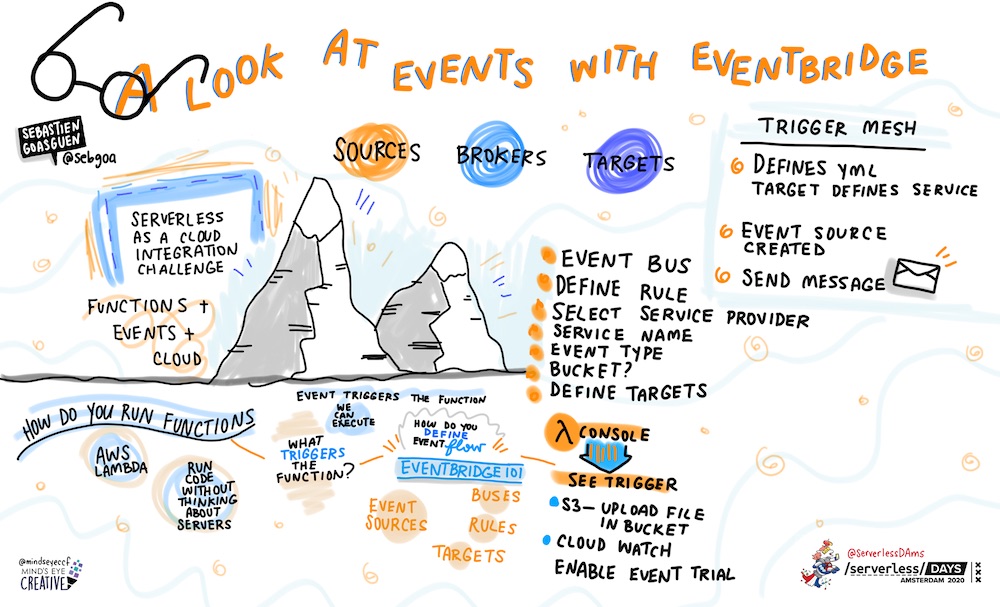 A LOOK AT EVENTS WITH EVENTBRIDGE
SEBASTIEN
GOASGUEN
@sebgoa
SOURCES
BROKERS
TARGETS
SERVERLESS
AS A CLOUD
INTEGRATION
CHALLENGE
FUNCTIONS +
EVENTS +
CLOUD
TRIGGER MESH
DEFINES YML
TARGET DEFINES SERVICE
EVENT SOURCE
CREATED
SEND MESSAGE
EVENT BUS
DEFINE RULE
SELECT SERVICE PROVIDER
SERVICE NAME
EVENT TYPE
BUCKET?
DEFINE TARGETS
HOW DO YOU RUN FUNCTIONS
AWS
LAMBDA
RUN
CODE
WITHOUT
THINKING
ABOUT
SERVERS
EVENT TRIGGERS THE FUNCTION
WE
CAN
EXECUTE
WHAT
TRIGGERS
THE
FUNCTION?
HOW DO YOU
DEFINE
EVENT flow
EVENTBRIDGE 101
EVENT
SOURCES
BUSES
RULES
TARGETS
λ CONSOLE
SEE TRIGGER
S3 - UPLOAD FILE
IN BUCKET
CLOUD WATCH
ENABLE EVENT TRIAL
@mindseyeccf
MIND'S EYE
CREATIVE
@ServerlessDAms
/serverless/ DAYS
AMSTERDAM 2020
XXX